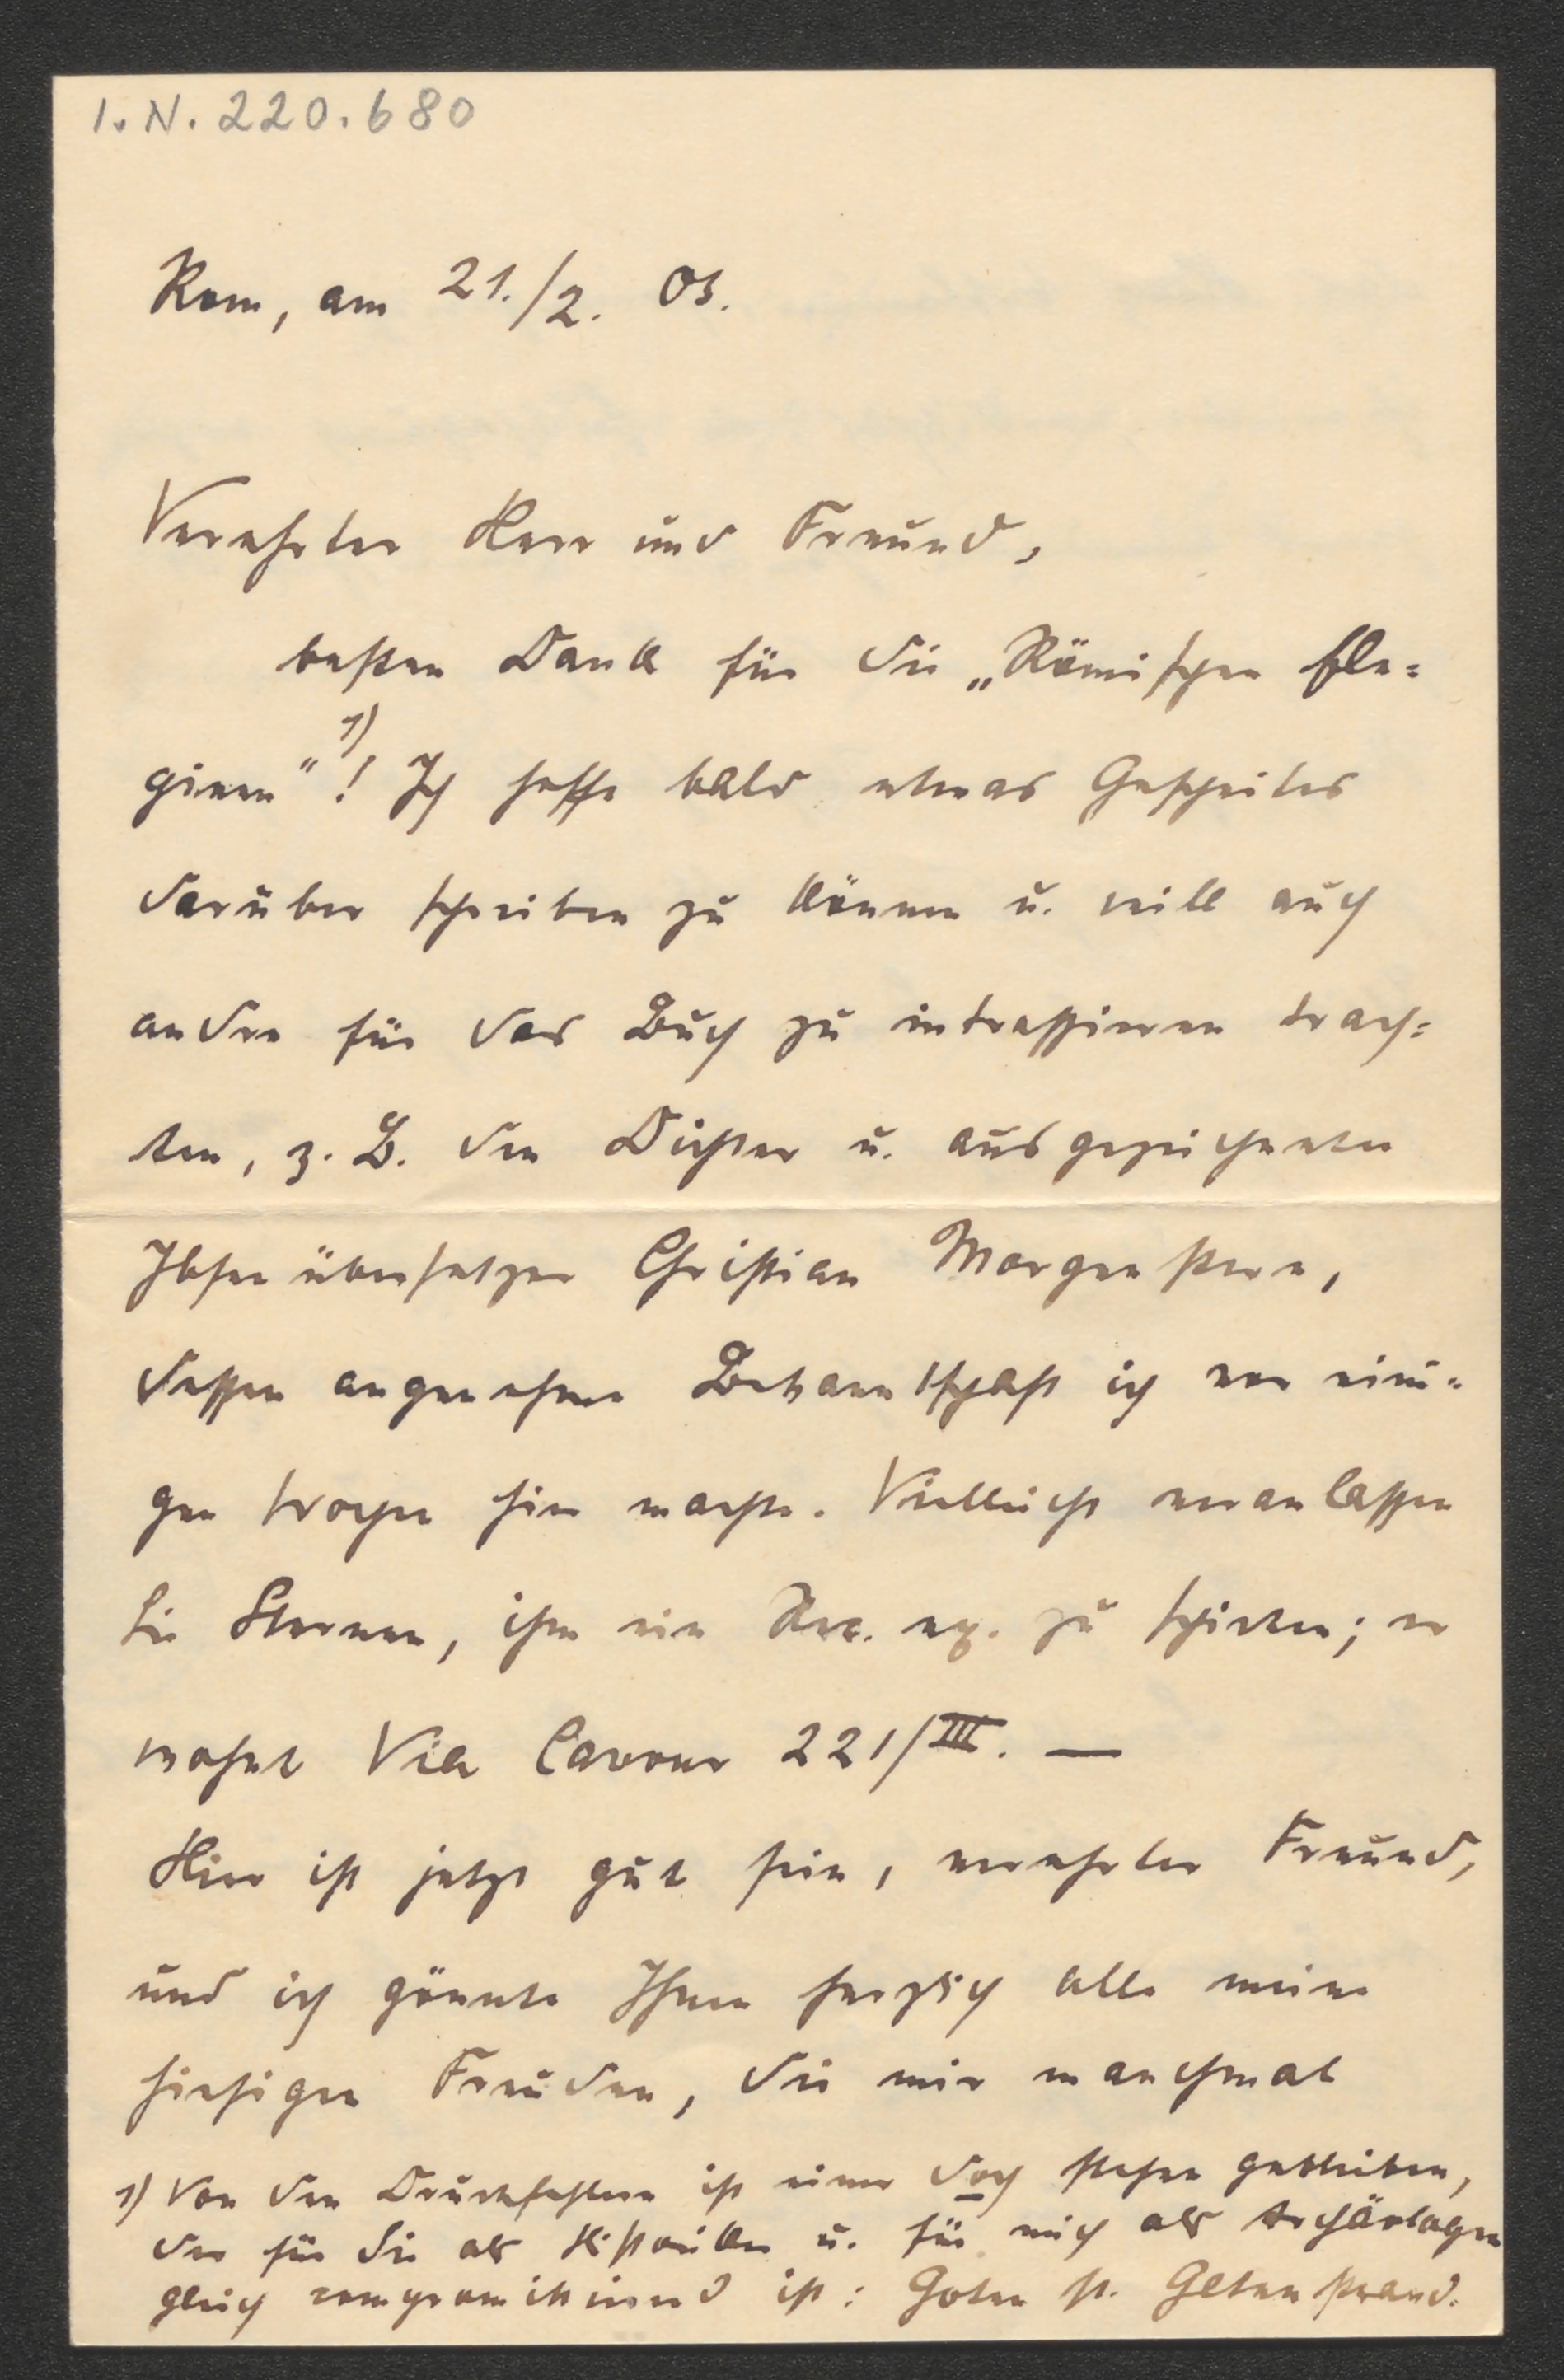 I. N. 220.680
Rom, am 21./2. 03.
Verehrter Herr und Freund,
besten Dank für die „Römischen Ele=
gieen" 1)! Ich hoffe bald etwas Gescheites
darüber schreiben zu können u. will auch
andre für das Buch zu intressieren trach=
ten, z. B. den Dichter u. ausgezeichneten
Ibsenübersetzer Christian Morgenstern,
dessen angenehme Bekanntschaft ich vor eini=
gen Wochen hier machte. Vielleicht veranlassen
Sie Sternen, ihm ein Rec. ex. zu schicken; er
wohnt Via Cavour 221/III. —
Hier ist jetzt gut sein, verehrter Freund,
und ich gönnte Ihnen herzlich alle meine
hiesigen Freuden, die mir manchmal
1) Von den Druckfehlern ist einer doch stehen geblieben,
der für Sie als Historiker u. für mich als Archäologen
gleich compromittierend ist: Goten st. Getenstrand.